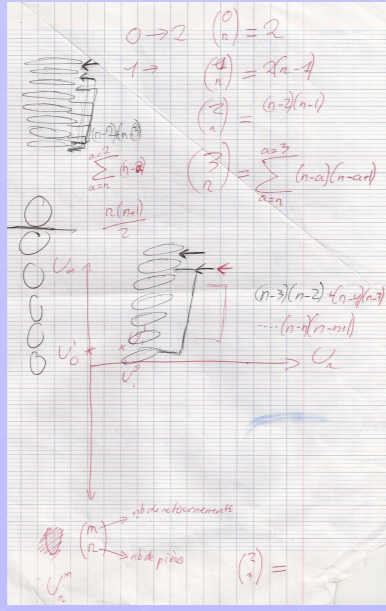 0 → 2 (0 n) = 2
1 → (1 n) = 2(n-1)
(2 n) = (n-2)(n-1)
(n-2)(n-3)
a=2
∑ (n-a)
a=n
(3 n) = ∑ (n-a)(n-a+1)
a=3
a=n
n(n+1)
2
U m
(n-3)(n-2) + (n-4)(n-3)
.....(n-n)(n-n+1)
U n
nb de retournements
(m n)
nb de pièces
U n m
(2 2) =